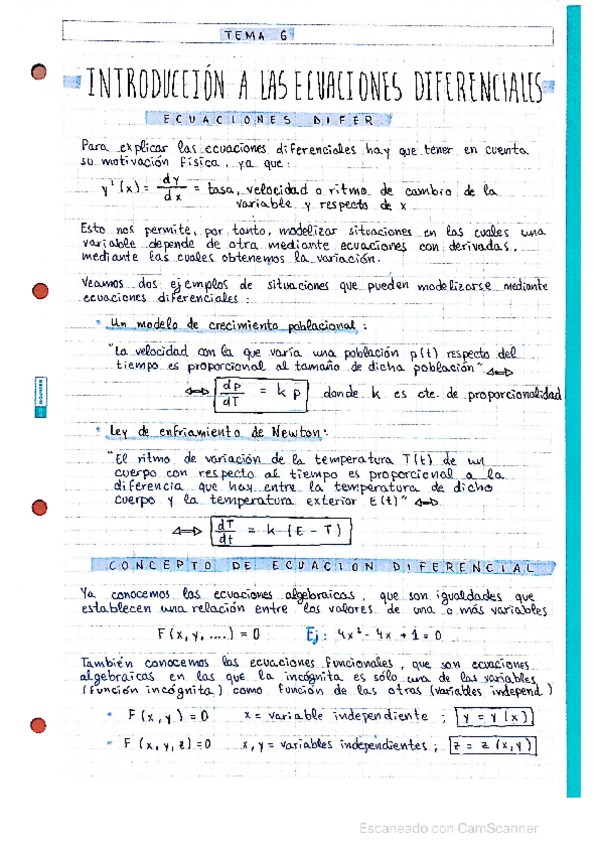 TEMA 6
INTRODUCCIÓN A LAS ECUACIONES DIFERENCIALES
ECUACIONES DIFER.
Para explicar las ecuaciones diferenciales hay que tener en cuenta
su motivación física, ya que:
y'(x) = dy/dx = tasa, velocidad o ritmo de cambio de la
variable y respecto de x
Esto nos permite, por tanto, modelizar situaciones en las cuales una
variable depende de otra mediante ecuaciones con derivadas,
mediante las cuales obtenemos la variación.
Veamos dos ejemplos de situaciones que pueden modelizarse mediante
ecuaciones diferenciales:
• Un modelo de crecimiento poblacional:
"La velocidad con la que varía una población p(t) respecto del
tiempo es proporcional al tamaño de dicha población" ⟺
⟺ dp/dT = k p donde k es cte. de proporcionalidad
• Ley de enfriamiento de Newton:
"El ritmo de variación de la temperatura T(t) de un
cuerpo con respecto al tiempo es proporcional a la
diferencia que hay entre la temperatura de dicho
cuerpo y la temperatura exterior E(t)" ⟺
⟺ dT/dt = k (E - T)
CONCEPTO DE ECUACIÓN DIFERENCIAL
Ya conocemos las ecuaciones algebraicas, que son igualdades que
establecen una relación entre los valores de una o más variables
F(x, y, ....) = 0 Ej: 4x² - 4x + 1 = 0
También conocemos las ecuaciones funcionales, que son ecuaciones
algebraicas en las que la incógnita es sólo una de las variables
(función incógnita) como función de las otras (variables independ.)
• F(x, y) = 0 x = variable independiente; y = y(x)
• F(x, y, z) = 0 x, y = variables independientes; z = z(x, y)
Escaneado con CamScanner